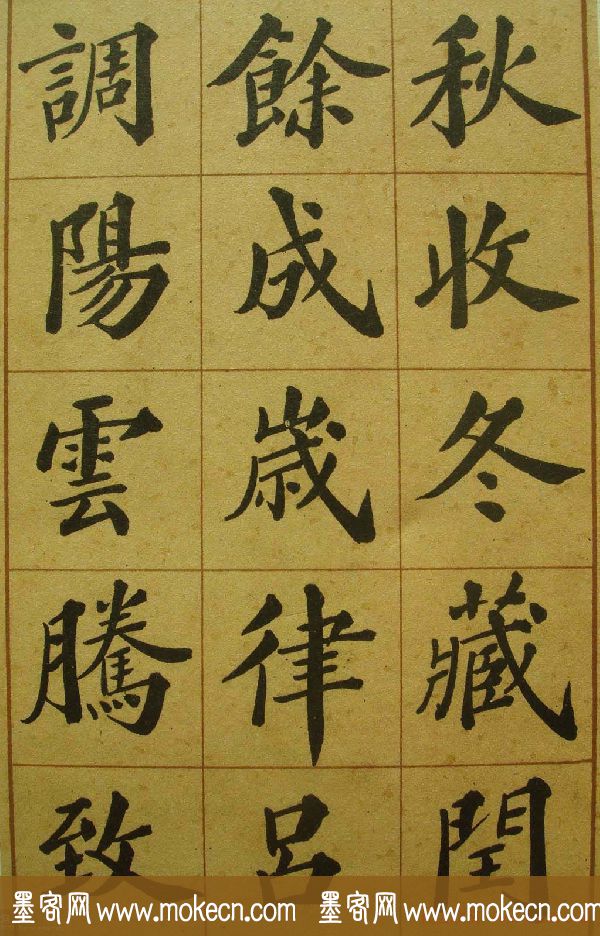 秋收冬藏閏
餘成歲律呂
調陽雲騰致
墨客网 www.mokecn.com 墨客网 www.mokecn.com